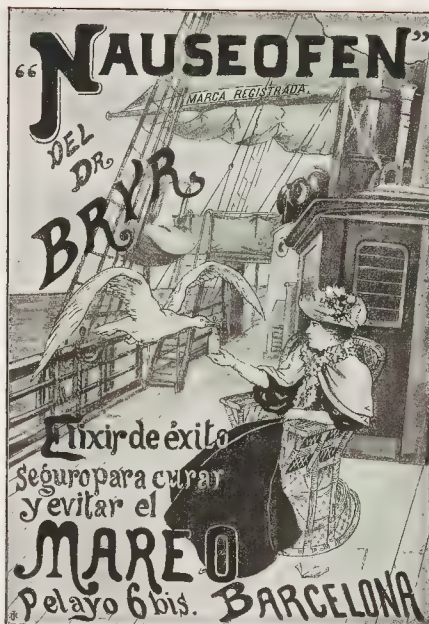 “NAUSEOFEN”
MARCA REGISTRADA.
DEL
DR.
BRVR
Elixir de éxito
seguro para curar
y evitar el
MAREO
Pelayo 6 bis. BARCELONA